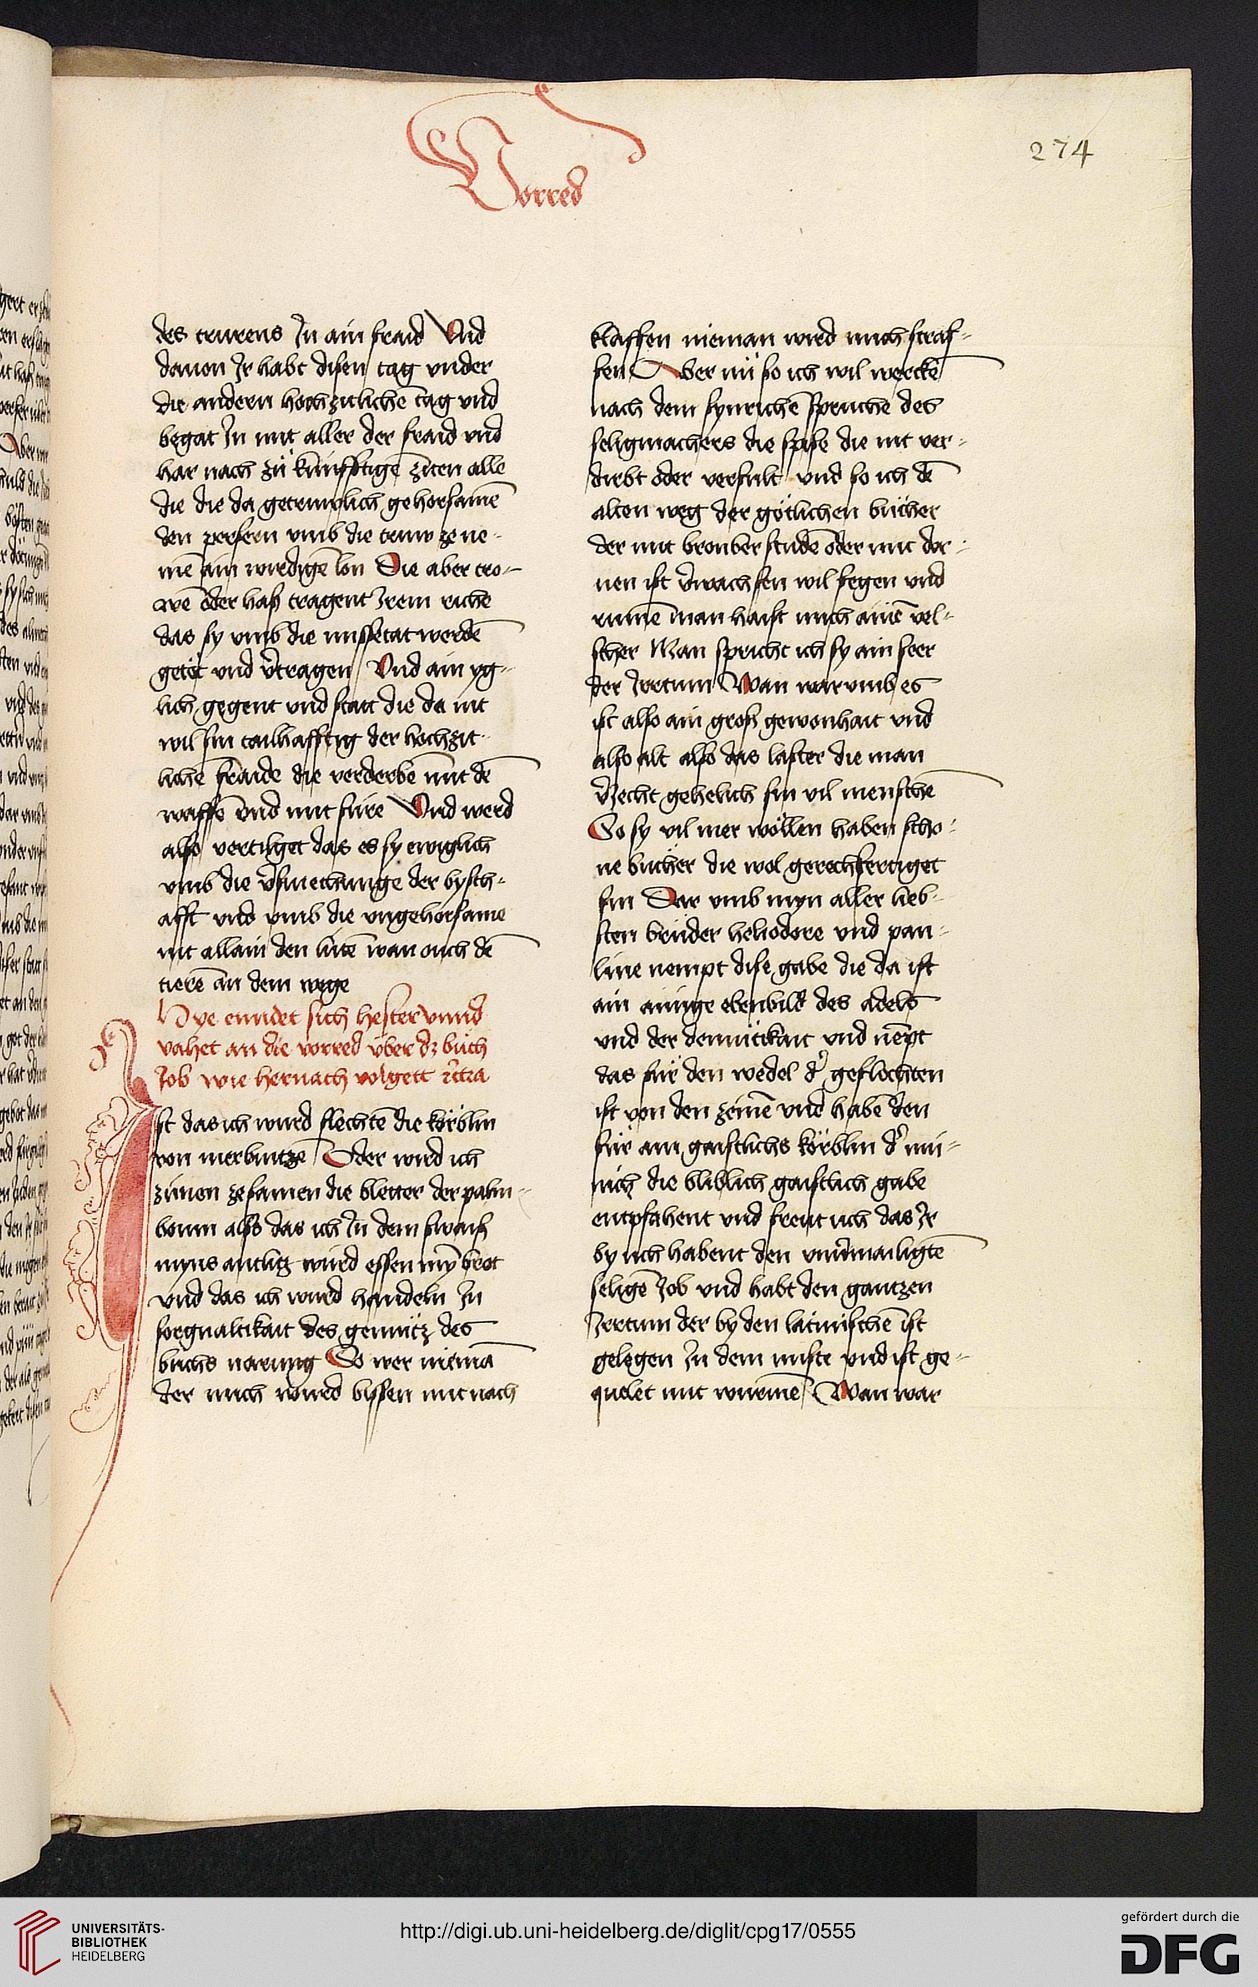 Vorred
274
des truͤrens Jn ain fraid Vnd
dauon Jr habt disen tag vnder
die andern hochzitlichē tag vnd
begat Jn mit aller der fraid vnd
har nach zuͦ kúnfftigē ziten alle
die die da getruwlich gehorsamē
den persern vmb die truw ze ne-
mē ain wirdigē lon Die aber tro-
wē oder haß tragent Jrem riche
das sy vmb die missetat werdē
getöt vnd v̾tragen Vnd ain yg-
lich gegent vnd statt die da nit
wil sin tailhafftig der hochzit-
lichē fraide die verderbē mit dē
waffē vnd mit fúre Vnd werd
also vertilget das es sy ewiglich
vmb die v̾smechunge der bysch-
afft vnd vmb die vngehorsame
nit allain den lútē wan ouch dē
tierē an dem wege
Hye enndet sich hester vnnd
vahet an die vorred über dz buͦch
Job wie hernach volgett ꝛctꝛa
Ist das ich wird flechtē die körblin
von merbintzē Oder wird ich
zúnen zesamen die bletter der palm-
boum also das ich Jn dem swaiß
myns antlitz wird essen my̅ brot
vnd das ich wird handeln Jn
sorgualtikait des gemútz des
buchs narung So wer niemā
der mich wurd byssen mit nach
klaffen nieman wird mich straf-
fen Aber nú so ich wil werckē
nach dem synrichē spruche des
seligmachers die spise die nit ver-
dirbt oder verfult vnd so ich dē
alten weg der götlichen buͤcher
der mit bromber studē oder mit dor-
nen ist v̾wachssen wil fegen vnd
rumē man haist mich ainē vel-
scher Man spricht ich sy ain seer
der Jrrtum Wan warvmb es
ist also ain groß gewonhait vnd
also alt also das laster die man
v̾jecht gehelich sin vil menschē
So sy vil mer wöllen haben scho-
ne buͤcher die wol gerechfertiget
sin Dar vmb myn aller lieb-
sten bruͤder heliodore vnd pau-
line nempt dise gabe die da ist
ain ainige ebenbild des adels
vnd der demuͤtikait vnd nēpt
das fúr den wedel d̾ geflochten
ist von den zainē vnd habē den
fúr ain gaistlichs körblin d̾ mú-
nich die bliblich gaistlich gabe
entpfahent vnd freut úch das Jr
by úch habent den vnv̾mailigtē
seligē Job vnd habt den gantzen
Jrrtum der by den latinischē ist
gelegen Jn dem miste vnd ist ge-
quelet mit wurmē Wan war
UNIVERSITÄTS-
BIBLIOTHEK
HEIDELBERG
http://digi.ub.uni-heidelberg.de/diglit/cpg17/0555
gefördert durch die
DFG